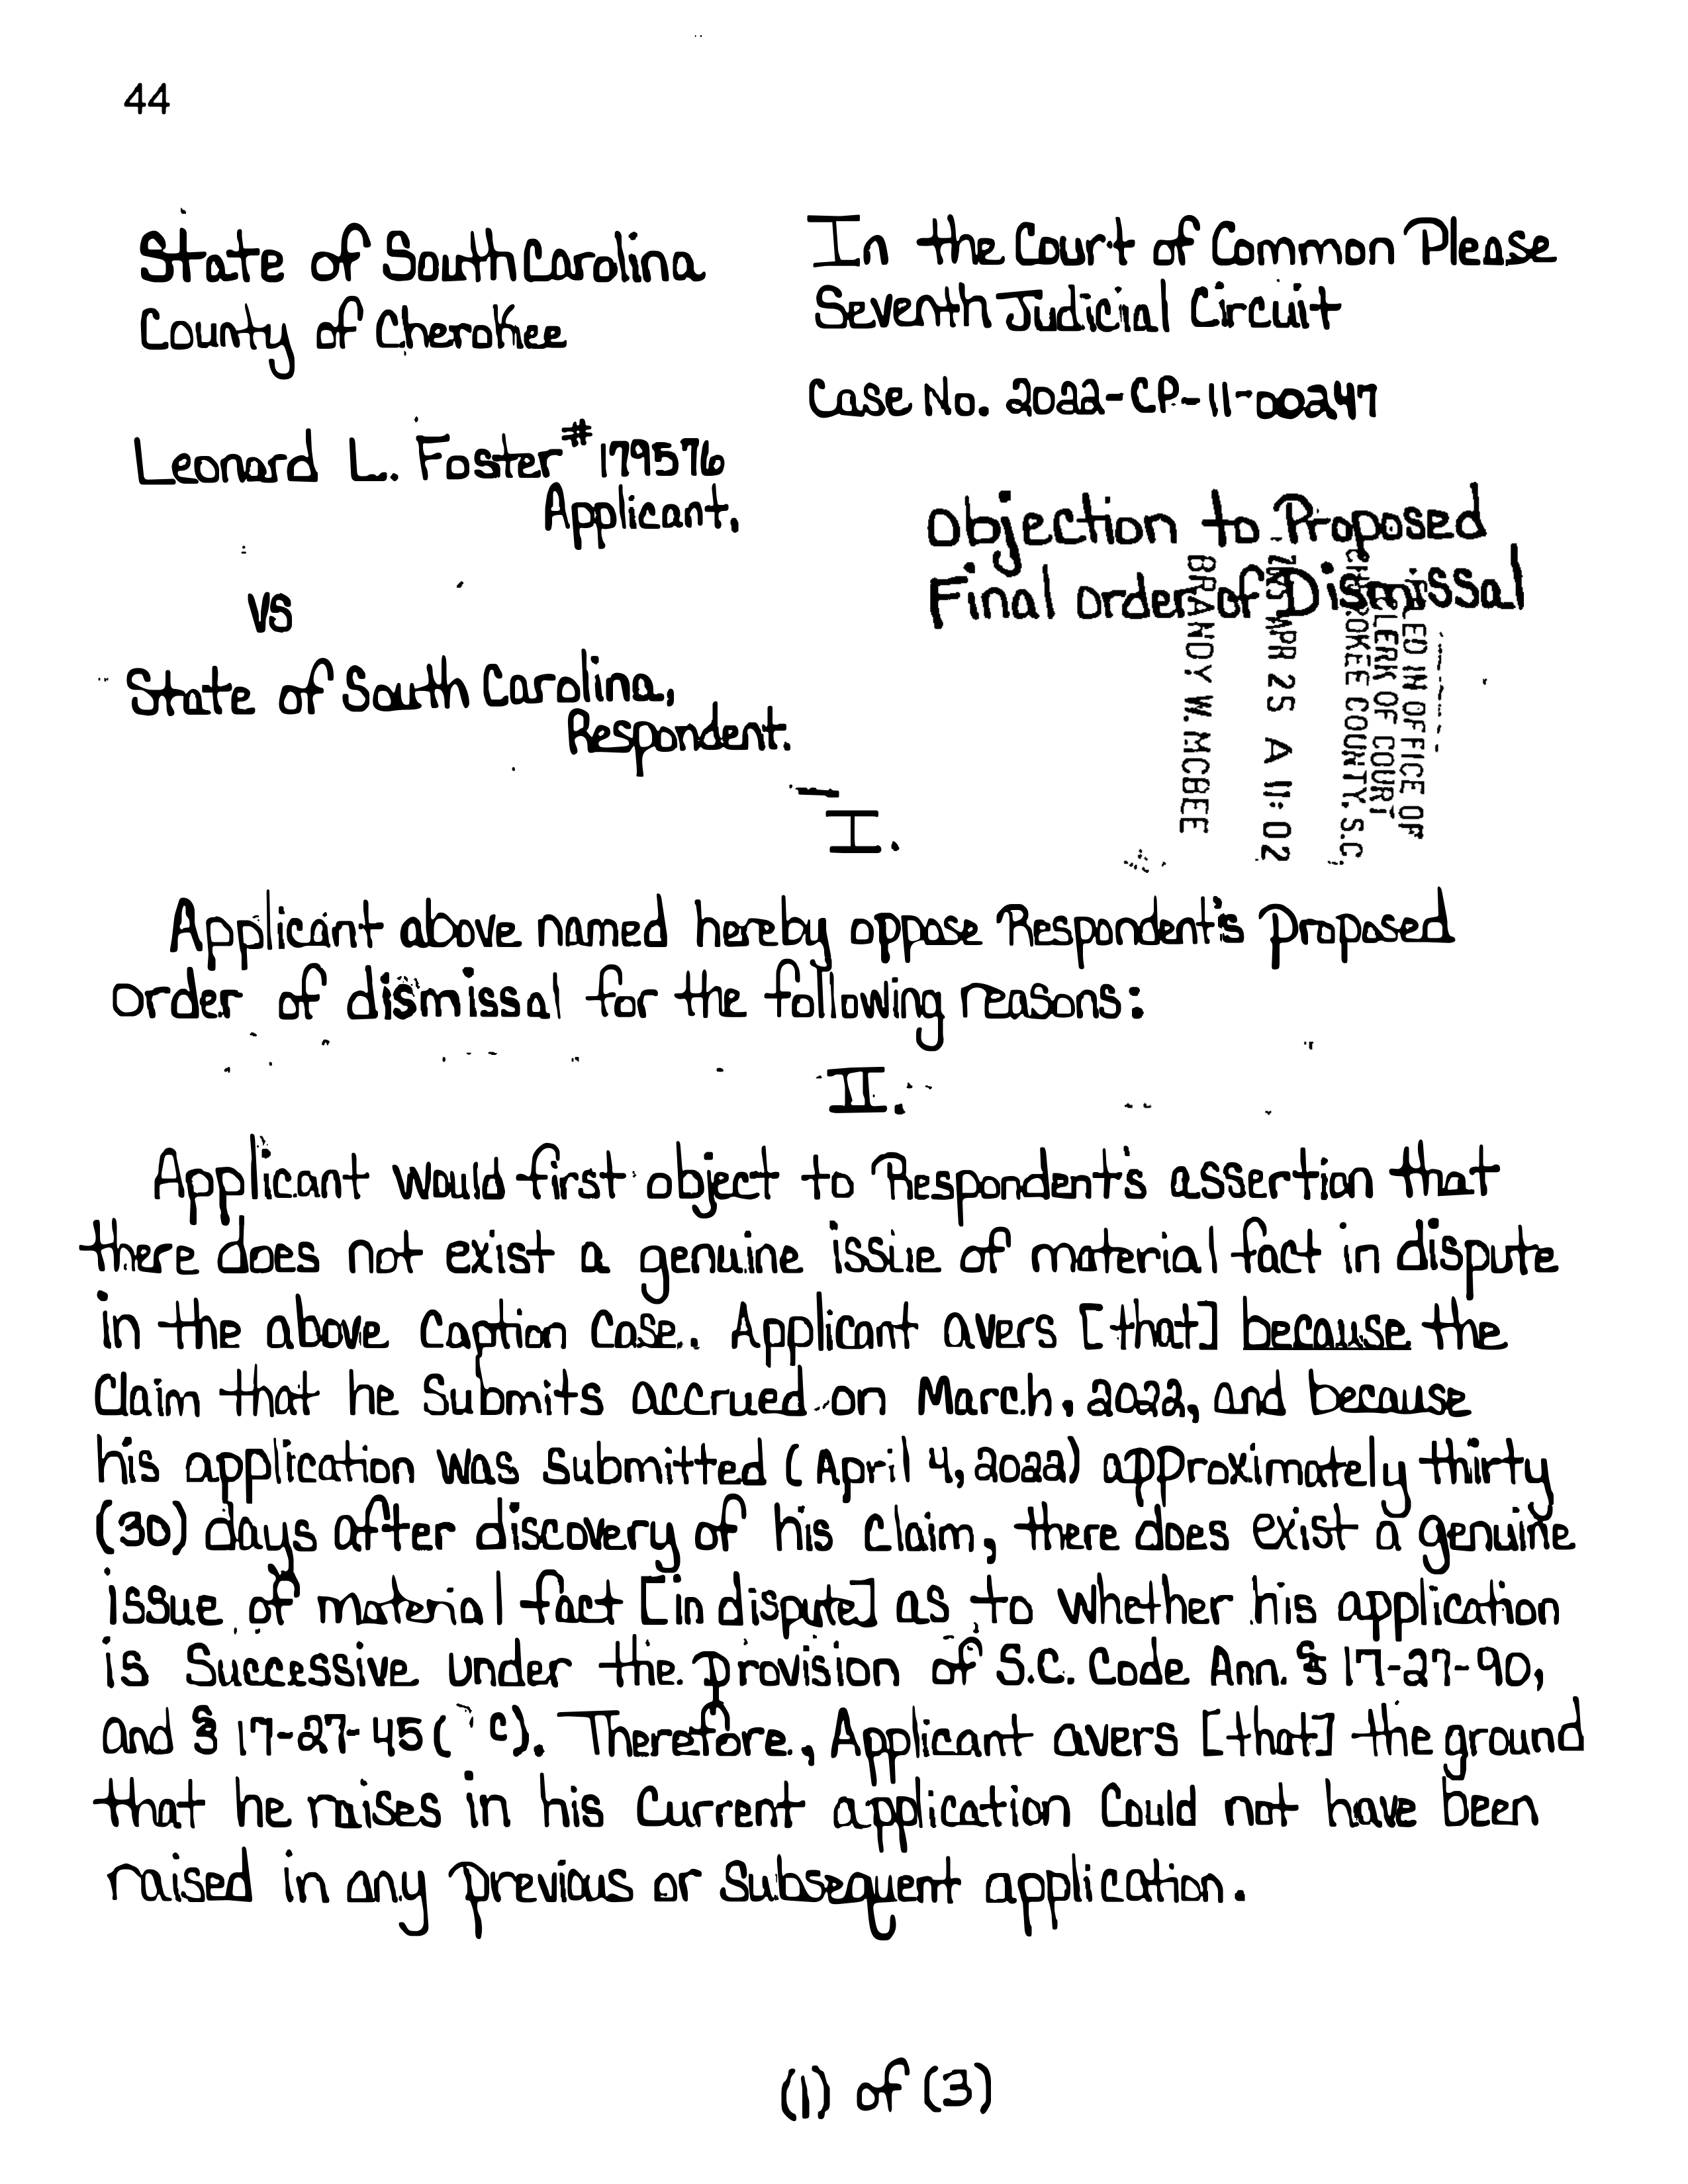 44
State of South Carolina
County of Cherokee
In the Court of Common Please
Seventh Judicial Circuit
Case No. 2022-CP-11-00247
Leonard L. Foster #179576
Applicant.
vs
State of South Carolina,
Respondent.
Objection to Proposed
Final order of Dismissal
FILED IN OFFICE OF
CLERK OF COURT
CHEROKEE COUNTY, S.C.
APR 25 A 11:02
BRANDY W. MCBEE
I.
Applicant above named hereby oppose Respondent's Proposed
order of dismissal for the following reasons:
II.
Applicant would first object to Respondent's assertion that
there does not exist a genuine issue of material fact in dispute
in the above caption case. Applicant avers [that] because the
claim that he submits accrued on March, 2022, and because
his application was submitted (April 4, 2022) approximately thirty
(30) days after discovery of his claim, there does exist a genuine
issue of material fact [in dispute] as to whether his application
is successive under the provision of S.C. Code Ann. § 17-27-90,
and § 17-27-45( c). Therefore, Applicant avers [that] the ground
that he raises in his current application could not have been
raised in any previous or subsequent application.
(1) of (3)